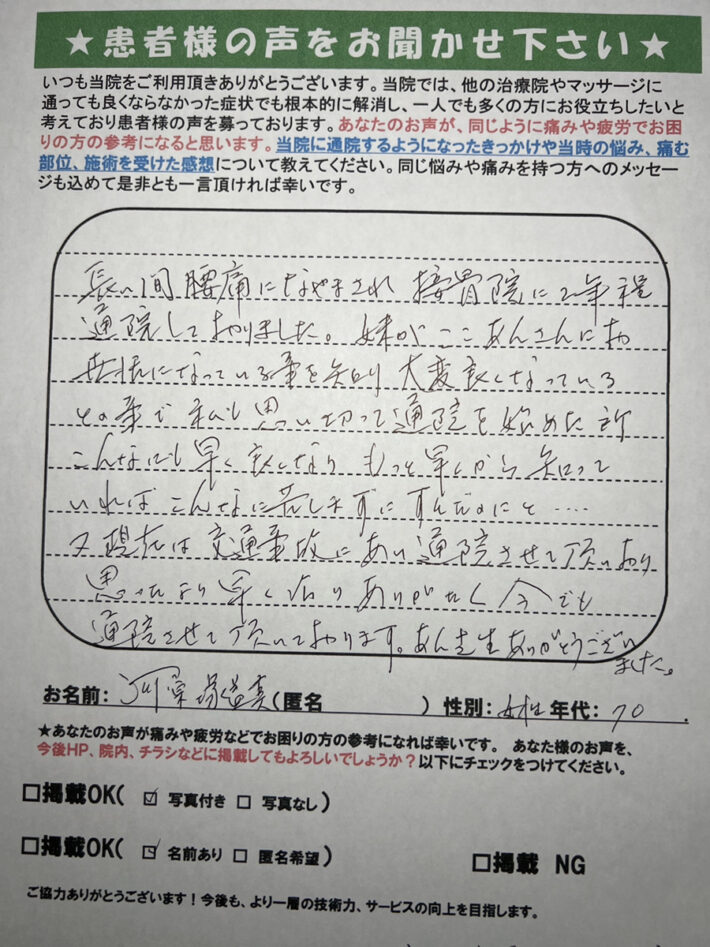 ★患者様の声をお聞かせ下さい★
いつも当院をご利用頂きありがとうございます。当院では、他の治療院やマッサージに
通っても良くならなかった症状でも根本的に解消し、一人でも多くの方にお役立ちしたいと
考えており患者様の声を募っております。あなたのお声が、同じように痛みや疲労でお困
りの方の参考になると思います。当院に通院するようになったきっかけや当時の悩み、痛む
部位、施術を受けた感想について教えてください。同じ悩みや痛みを持つ方へのメッセー
ジも込めて是非とも一言頂ければ幸いです。
長い間腰痛になやまされ 接骨院に2年程
通院しておりました。妹がここあんさんにお
世話になっている事を知り 大変良くなっている
その事で私も思い切って通院を始めた所
こんなにも早く良くなり もっと早くから知って
いればこんなに苦しまずにすんだのにと....
又現在は交通事故にあい通院させて頂いおり
思ったより早く治りありがたく今でも
通院させて頂いております。あん先生ありがとうござい
ました。
お名前: 河原 (匿名 ) 性別: 女性 年代: 70 .
★あなたのお声が痛みや疲労などでお困りの方の参考になれば幸いです。 あなた様のお声を、
今後HP、院内、チラシなどに掲載してもよろしいでしょうか?以下にチェックをつけてください。
□掲載OK( ☑ 写真付き □ 写真なし)
□掲載OK( ☑ 名前あり □ 匿名希望) □掲載 NG
ご協力ありがとうございます!今後も、より一層の技術力、サービスの向上を目指します。